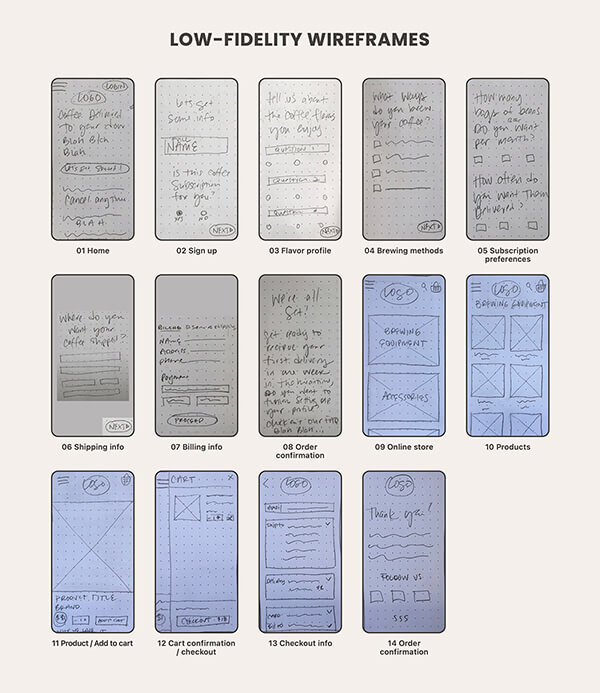 LOW-FIDELITY WIREFRAMES
LOGIN
LOGO
Coffee Delivered
To your
Blah Blah
Blah
Let's get started!
Cancel anytime
BLAH
01 Home
Lets get
some info
NAME
Is this coffee
subscription
for you?
NEXT
02 Sign up
tell us about
the coffee flavors
you enjoy
QUESTION 1
QUESTION 2
QUESTION
NEXT
03 Flavor profile
What ways
do you brew
your coffee?
NEXT
04 Brewing methods
How many
bags of beans
Do you want
per month?
How often do
you want them
Delivered?
05 Subscription
preferences
Where do you
want your
coffee shipped?
NEXT
06 Shipping info
NAME
Address
phone
Payment
PROCEED
07 Billing info
We're all
Set!
get ready to
receive your
first delivery
in one week
in the meantime,
Do you want to
check out our
Blah Blah...
08 Order
confirmation
LOGO
BREWING
EQUIPMENT
ACCESSORIES
09 Online store
LOGO
BREWING EQUIPMENT
10 Products
LOGO
PRODUCT TITLE
BRAND
$$
- 1 +
ADD TO CART
11 Product / Add to cart
CART
X
CHECKOUT
12 Cart confirmation
/ checkout
LOGO
email
13 Checkout info
LOGO
Thank you!
FOLLOW US
14 Order
confirmation